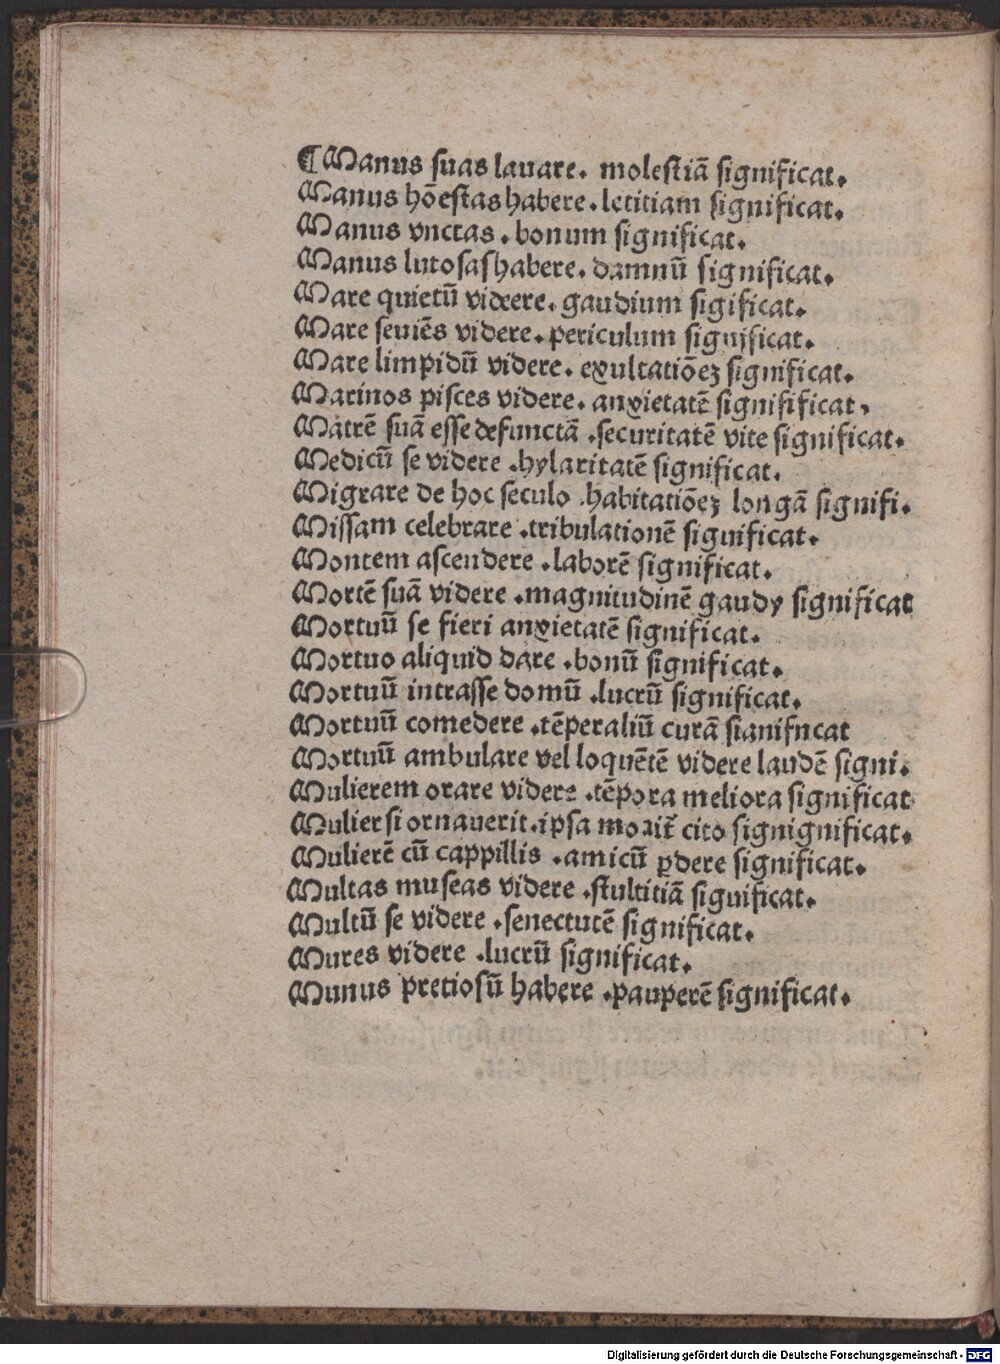 ¶Manus suas lauare. molestiā significat.
Manus hōestas habere. letitiam significat.
Manus vnctas. bonum significat.
Manus lutosas habere. damnū significat.
Mare quietū videere. gaudium sigificat.
Mare seuiēs videre. periculum significat.
Mare limpidū videre. exultatiōeꝫ significat.
Marinos pisces videre. anxietatē signifificat,
Matrē suā esse defunctā .securitatē vite significat.
Medicū se videre .hylaritatē significat.
Migrare de hoc seculo .habitatiōeꝫ longā signifi.
Missam celebrare .tribulationē significat.
Montem ascendere .laborē significat.
Mortē suā videre .magnitudinē gaudy significat
Mortuū se fieri anxietatē significat.
Mortuo aliquid dare .bonū significat.
Mortuū intrasse domū .lucrū significat.
Mortuū comedere .tēperaliū curā sianifncat
Mortuū ambulare vel loquētē videre laudē signi.
Mulierem orare videre .tēpora meliora significat
Mulier si ornauerit. ipsa moꝛit̄ cito signignificat.
Mulierē cū cappillis .amicū ꝑdere significat.
Multas museas videre .stultitiā significat.
Multū se videre .senectutē significat.
Mures videre .lucrū significat.
Munus pretiosū habere .pauperē significat.
Digitalisierung gefördert durch die Deutsche Forschungsgemeinschaft - DFG